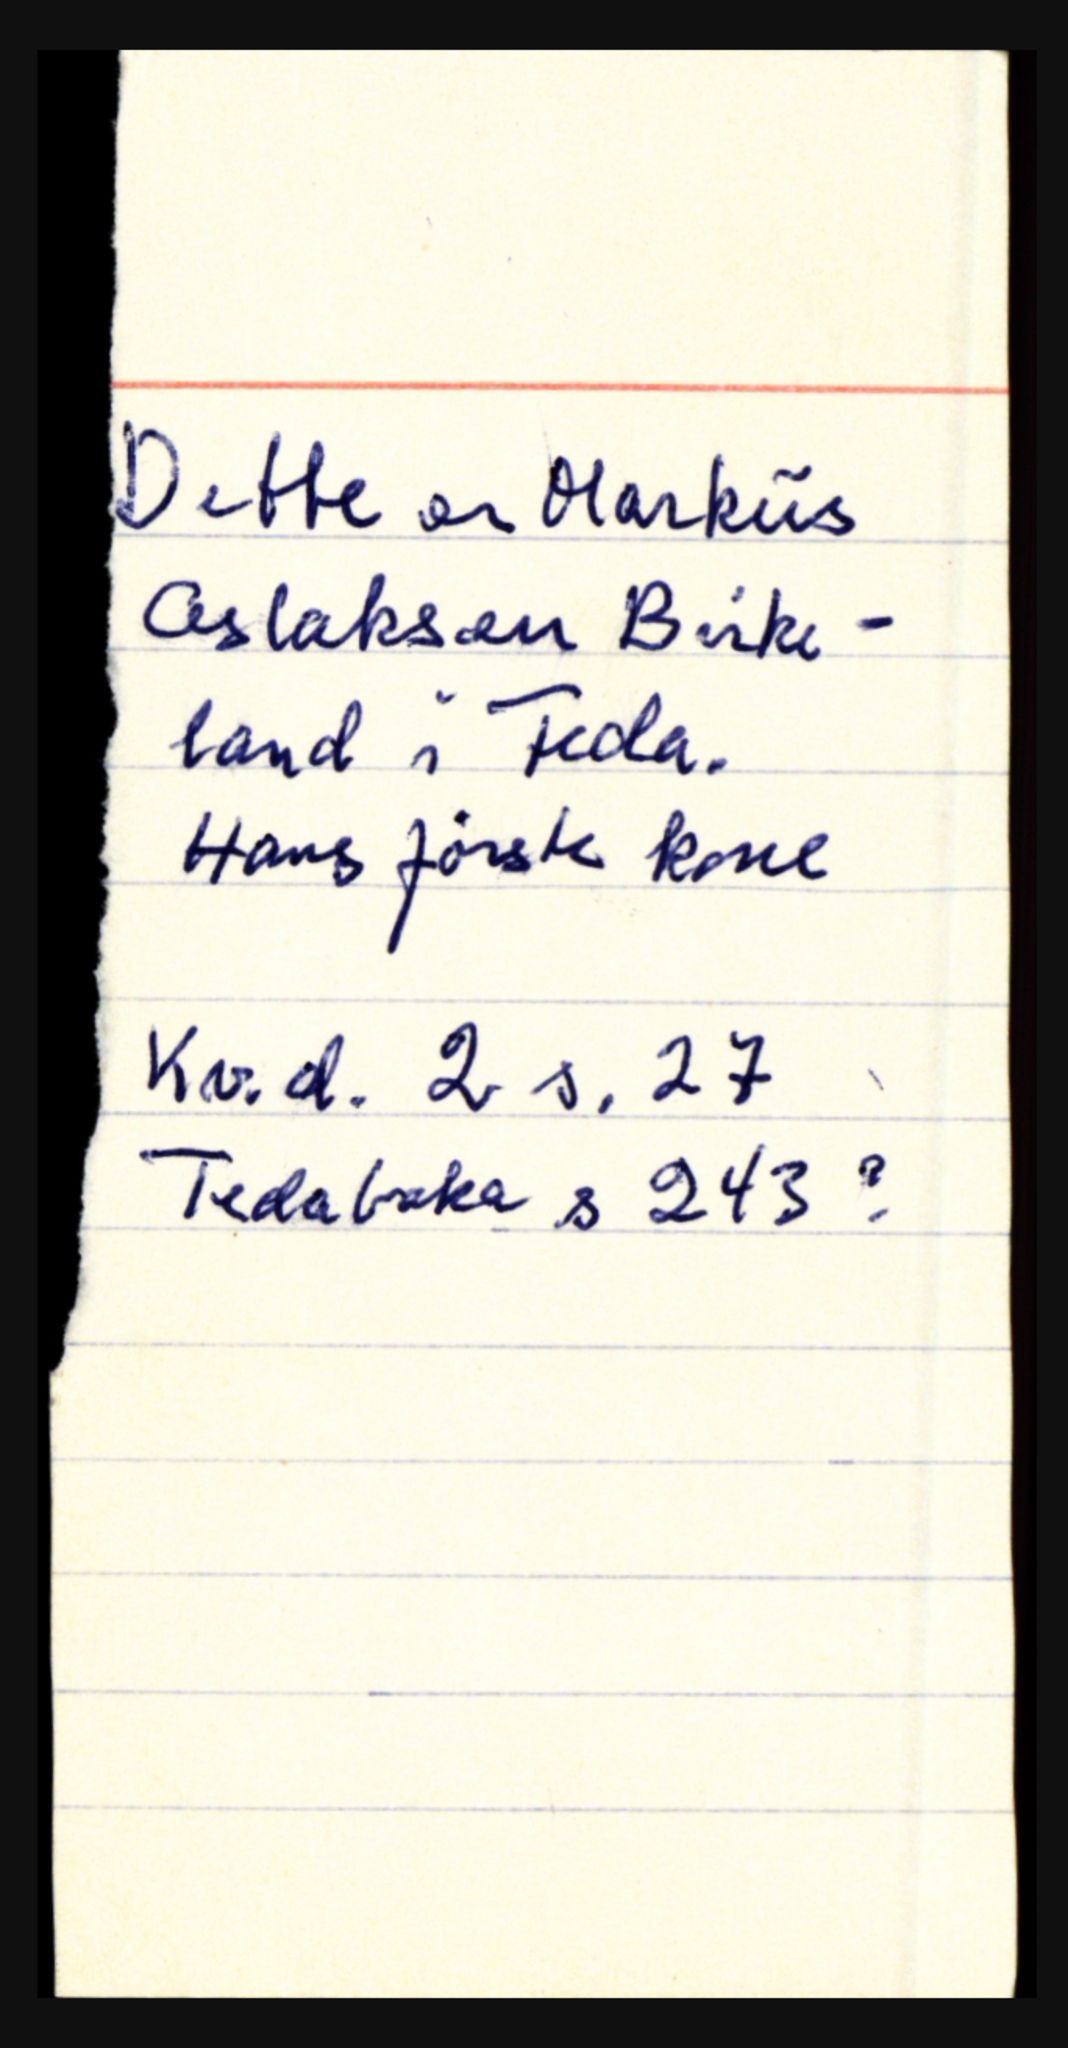 Dette er Markus
Aslaksen Birke-
land i Feda.
Hans förste kone
Kv.d. 2 s. 27
Fedaboka s 243?